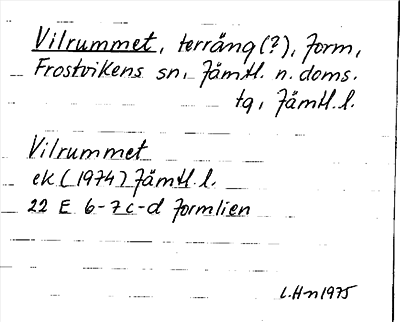 Vilrummet, terräng (?), Jorm,
Frostvikens sn, Jämtl. n. doms.
tg, Jämtl. l.
Vilrummet
ek (1974) Jämtl. l.
22 E 6-7 c-d Jormlien
L.Hn 1975